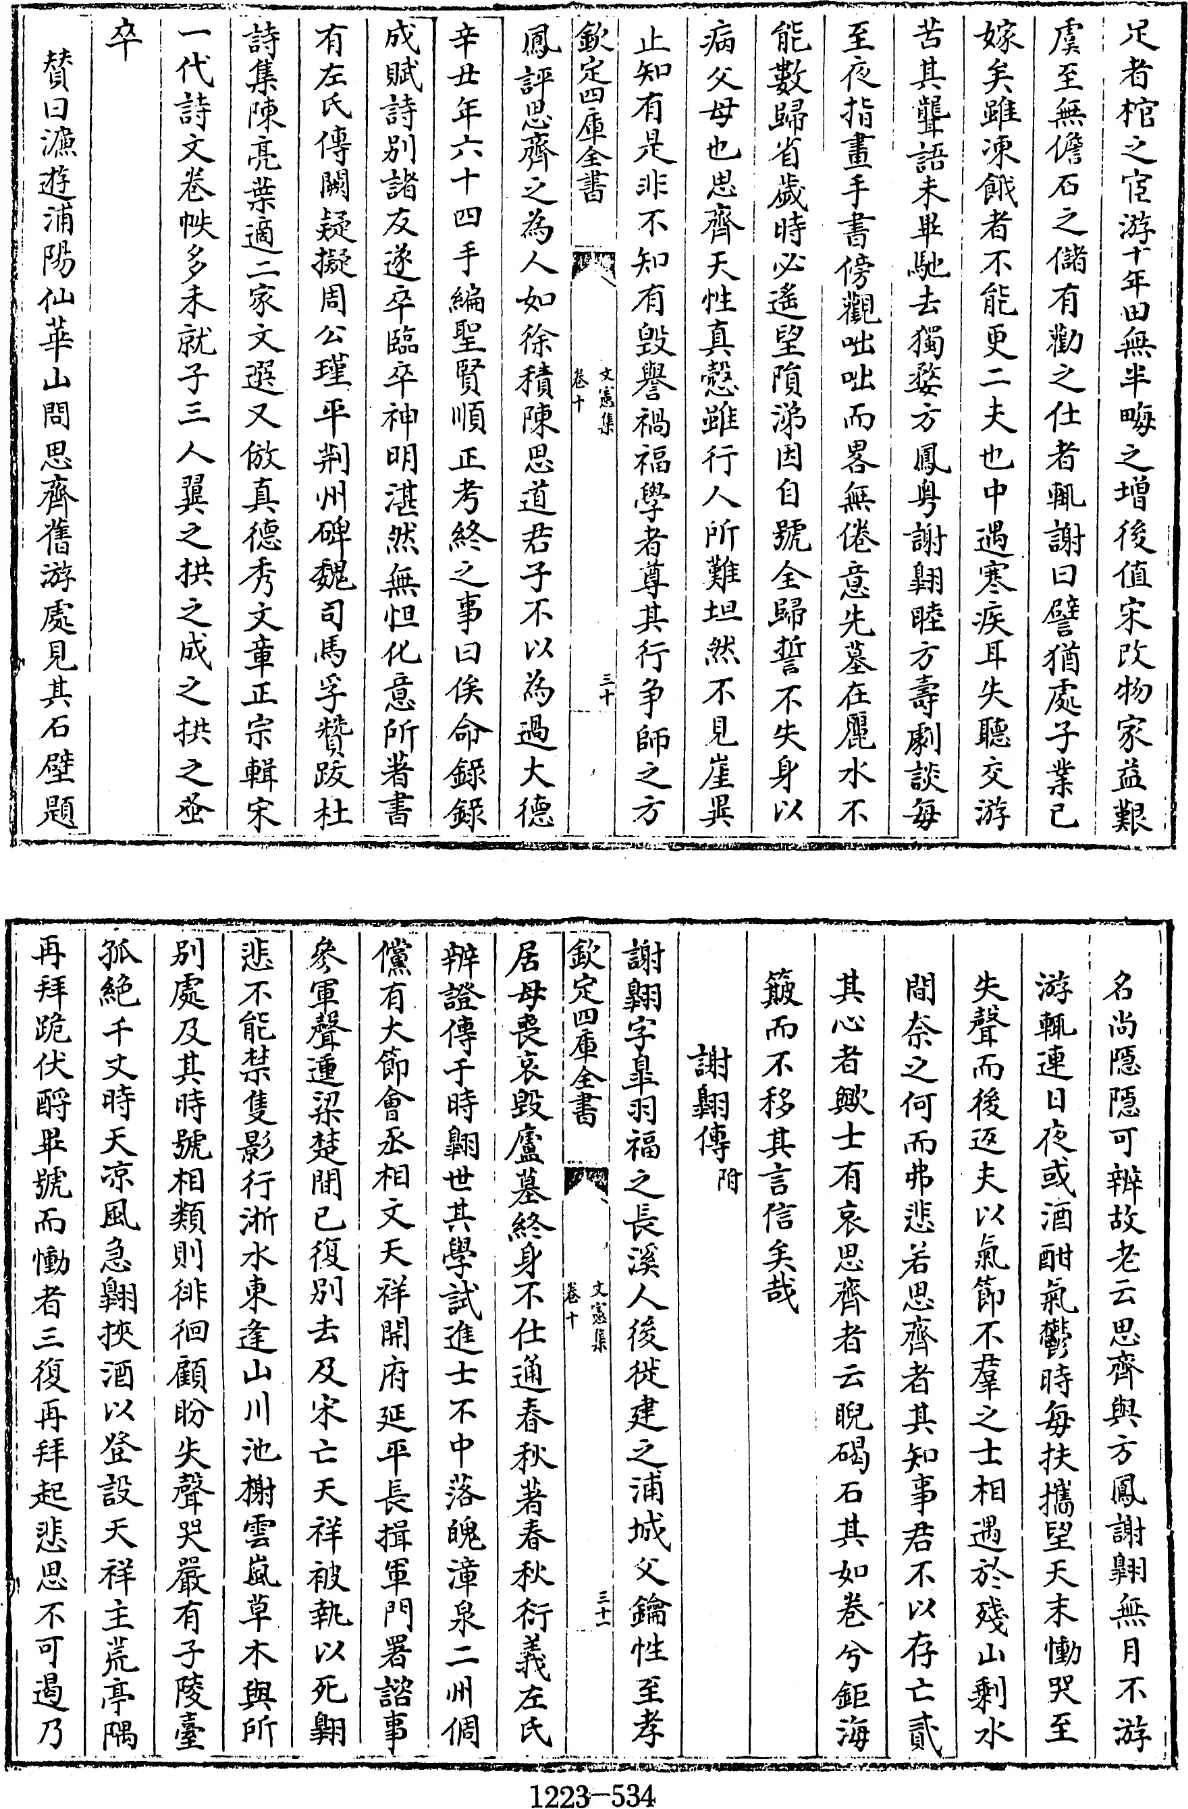 足者棺之宦游十年田無半畮之增後值宋改物家益艱
虞至無儋石之儲有勸之仕者輒謝曰譬猶處子業已
嫁矣雖凍餓者不能更二夫也中遇寒疾耳失聽交游
苦其聾語未畢馳去獨婺方鳳粤謝翺睦方壽劇談每
至夜指畫手書傍觀咄咄而畧無倦意先墓在麗水不
能數歸省歲時必遙望隕涕因自號全歸誓不失身以
病父母也思齊天性真慤雖行人所難坦然不見崖異
止知有是非不知有毁譽禍福學者尊其行争師之方
欽定四庫全書
文憲集
卷十
三十
鳳評思齊之為人如徐積陳思道君子不以為過大德
辛丑年六十四手編聖賢順正考終之事曰俟命錄錄
成賦詩别諸友遂卒臨卒神明湛然無怛化意所著書
有左氏傳闕疑擬周公瑾平荆州碑魏司馬孚贊跋杜
詩集陳亮葉適二家文選又倣真德秀文章正宗輯宋
一代詩文卷帙多未就子三人翼之拱之成之拱之蚤
卒
贊曰濂遊浦陽仙華山問思齊舊游處見其石壁題
名尚隱隱可辨故老云思齊與方鳳謝翺無月不游
游輒連日夜或酒酣氣鬱時每扶攜望天末慟哭至
失聲而後返夫以氣節不羣之士相遇於殘山剩水
間奈之何而弗悲若思齊者其知事君不以存亡貳
其心者歟士有哀思齊者云睨碣石其如卷兮鉅海
簸而不移其言信矣哉
謝翺傳附
謝翺字臯羽福之長溪人後徙建之浦城父鑰性至孝
欽定四庫全書
文憲集
卷十
三十一
居母喪哀毁廬墓終身不仕通春秋著春秋衍義左氏
辨證傳于時翺世其學試進士不中落魄漳泉二州倜
儻有大節會丞相文天祥開府延平長揖軍門署諮事
參軍聲連梁楚間已復别去及宋亡天祥被執以死翺
悲不能禁隻影行浙水東逢山川池榭雲嵐草木與所
别處及其時號相類則徘徊顧盼失聲哭嚴有子陵臺
孤絶千丈時天凉風急翺挾酒以登設天祥主荒亭隅
再拜跪伏酹畢號而慟者三復再拜起悲思不可遏乃
1223-534